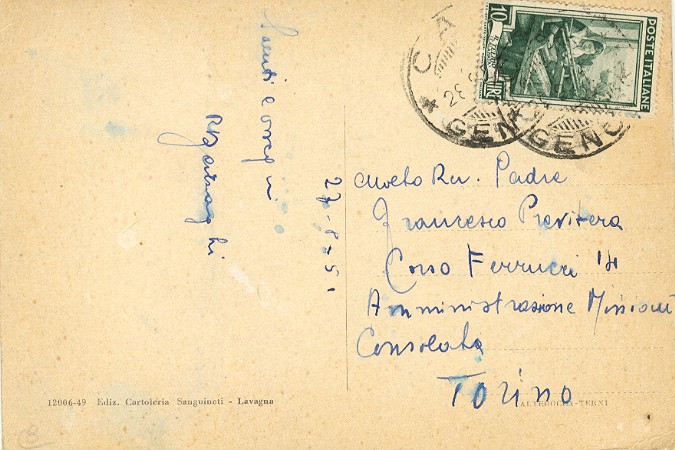 27-8-51
POSTE ITALIANE
10
LIRE
28
GENO
GENO
Rev. Padre
Francesco Previtera
Corso Ferrucci 14
Amministrazione Missioni
Consolata
TORINO
12006-49 Ediz. Cartoleria Sanguineti - Lavagna
ALTEROCCA-TERNI